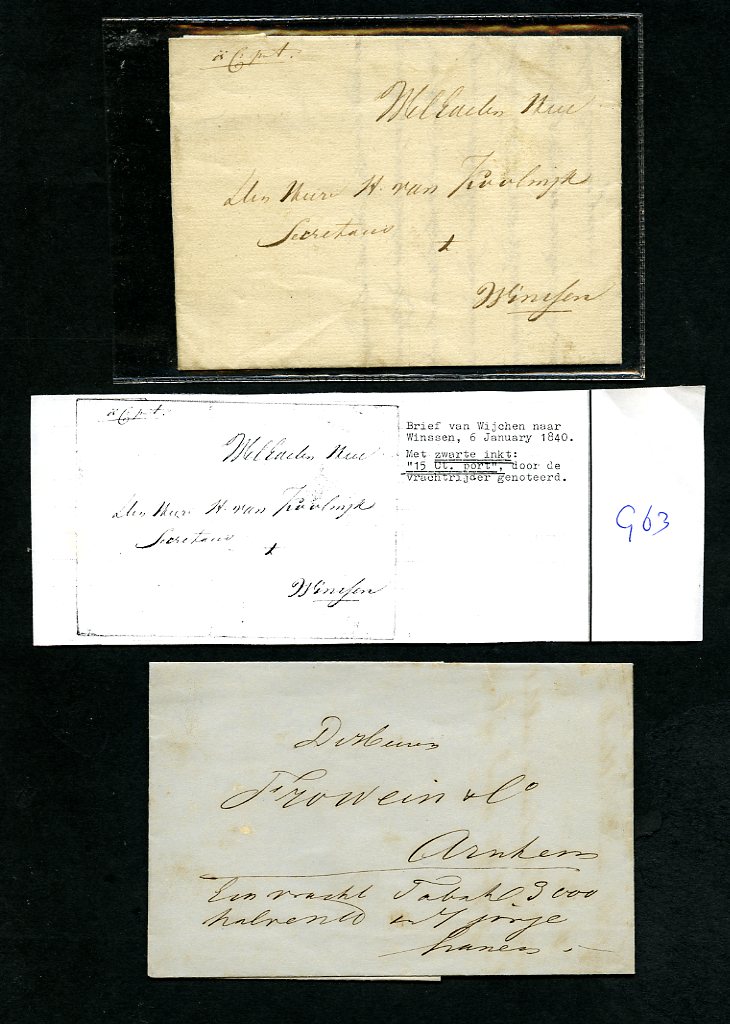 Cts port.
WelEdelen Heer
Den Heere H. van Koolwijk
Secretaris
Winssen
Cts port.
WelEdelen Heer
Den Heere H. van Koolwijk
Secretaris
Winssen
Brief van Wijchen naar
Winssen, 6 January 1840.
Met zwarte inkt:
"15 Ct. port", door de
vrachtrijder genoteerd.
G63
De Heeren
Frowein & Co
Arnhem
Een vracht Tabak 3000
en 7 jonge
hanen.